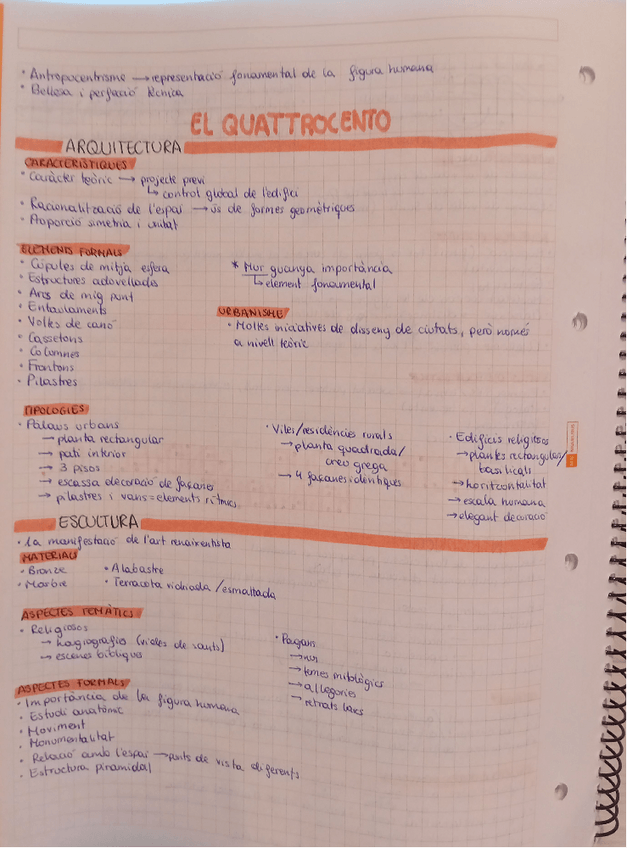 · Antropocentrisme → representació fonamental de la figura humana
· Bellesa i perfecció tècnica
EL QUATTROCENTO
ARQUITECTURA
CARACTERÍSTIQUES
· Caràcter teòric → projecte previ
↳ control global de l'edifici
· Racionalització de l'espai → ús de formes geomètriques
· Proporció simetria i unitat
ELEMENTS FORMALS
· Cúpules de mitja esfera
· Estructures adovellades
· Arcs de mig punt
· Entaulaments
· Voltes de canó
· Cassetons
· Columnes
· Frontons
· Pilastres
* Mur guanya importància
↳ element fonamental
URBANISME
· Moltes iniciatives de disseny de ciutats, però només
a nivell teòric
TIPOLOGIES
· Palaus urbans
→ planta rectangular
→ pati interior
→ 3 pisos
→ escassa decoració de façanes
→ pilastres i vans = elements rítmics
· Viles/residències rurals
→ planta quadrada/
creu grega
→ 4 façanes idèntiques
· Edificis religiosos
→ plantes rectangular/
basilical
→ horitzontalitat
→ escala humana
→ elegant decoració
ESCULTURA
· La manifestació de l'art renaixentista
MATERIALS
· Bronze
· Marbre
· Alabastre
· Terracota vidriada/esmaltada
ASPECTES TEMÀTICS
· Religiosos
→ hagiografia (vides de sants)
→ escenes bíbliques
· Pagans
→ nus
→ temes mitològics
→ al·legories
→ retrats laics
ASPECTES FORMALS
· Importància de la figura humana
· Estudi anatòmic
· Moviment
· Monumentalitat
· Relació amb l'espai → punts de vista diferents
· Estructura piramidal